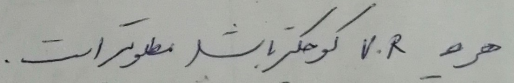 هرچه V.R کوچکتر باشد مطلوبتر است.